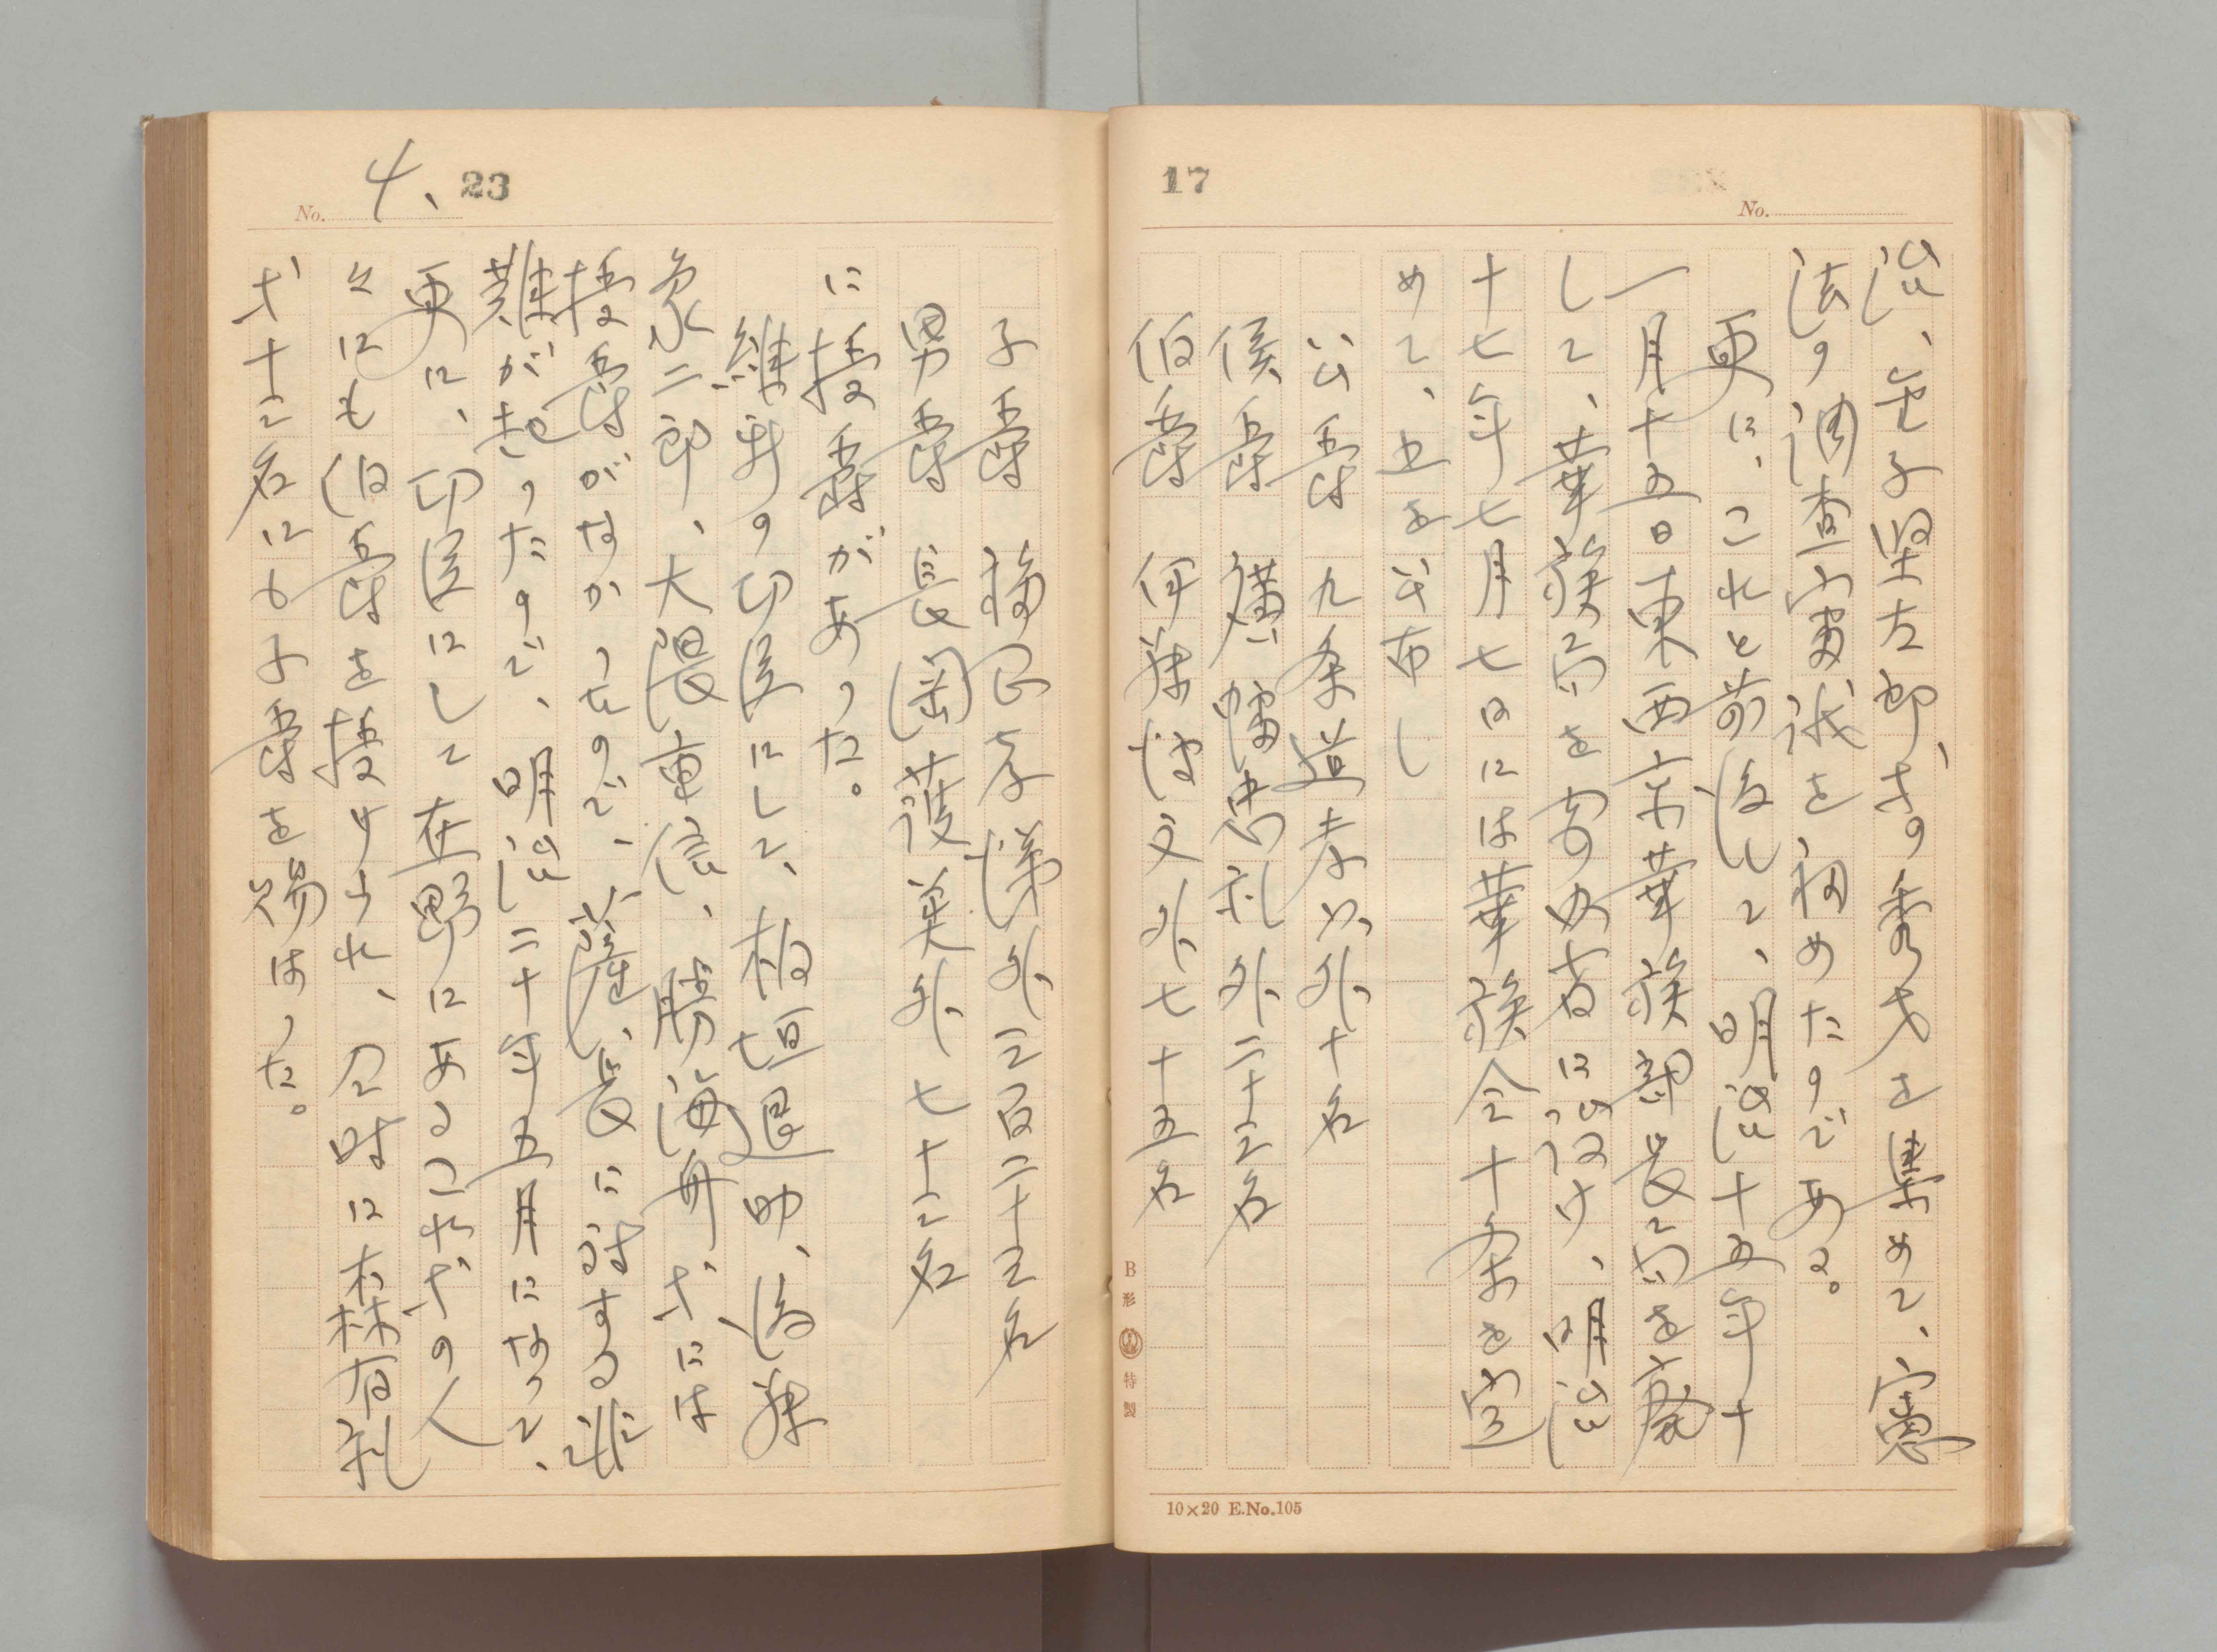 17
No.
治、金子堅太郎、等の秀才を集めて、憲
法の調査審議を初めたのである。
更に、これと前後して、明治十五年十
一月十五日東西両京華族部長局を廃
して、華族局を宮内省に設け、明治
十七年七月七日には華族令十条を定
めて、之を公布し
公爵 九条道孝以外十名
侯爵 廣幡忠礼外二十三名
伯爵 伊藤博文外七十五名
B形 特製
10×20 E.No.105
4、 23
No.
子爵 福岡孝悌外三百二十三名
男爵 長岡護美外七十三名
に授爵があった。
維新の功臣にして、板垣退助、後藤
象二郎、大隈重信、勝海舟等には
授爵がなかったので、薩、長に対する非
難が起ったので、明治二十年五月になって、
更に、功臣にして在野にあるこれ等の人
々にも伯爵を授けられ、同時に森有礼
等十三名にも子爵を賜はった。